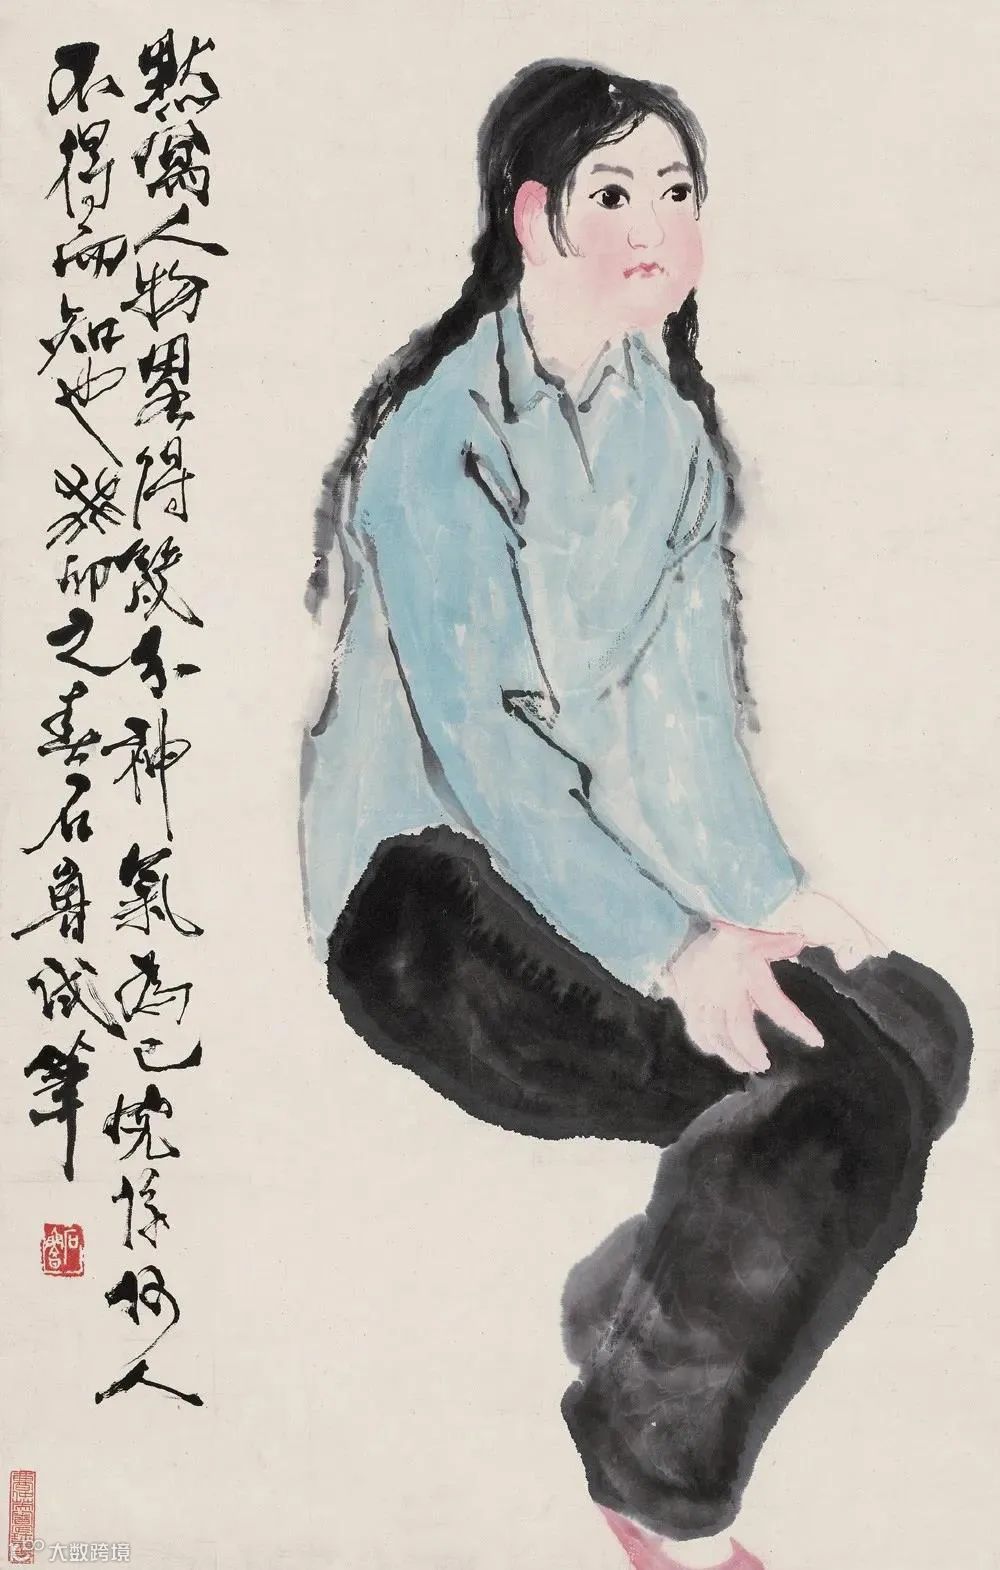 默寫人物畧得幾分神氣為已係何人
不得而知也癸卯之春石魯試筆
石魯
大数跨境